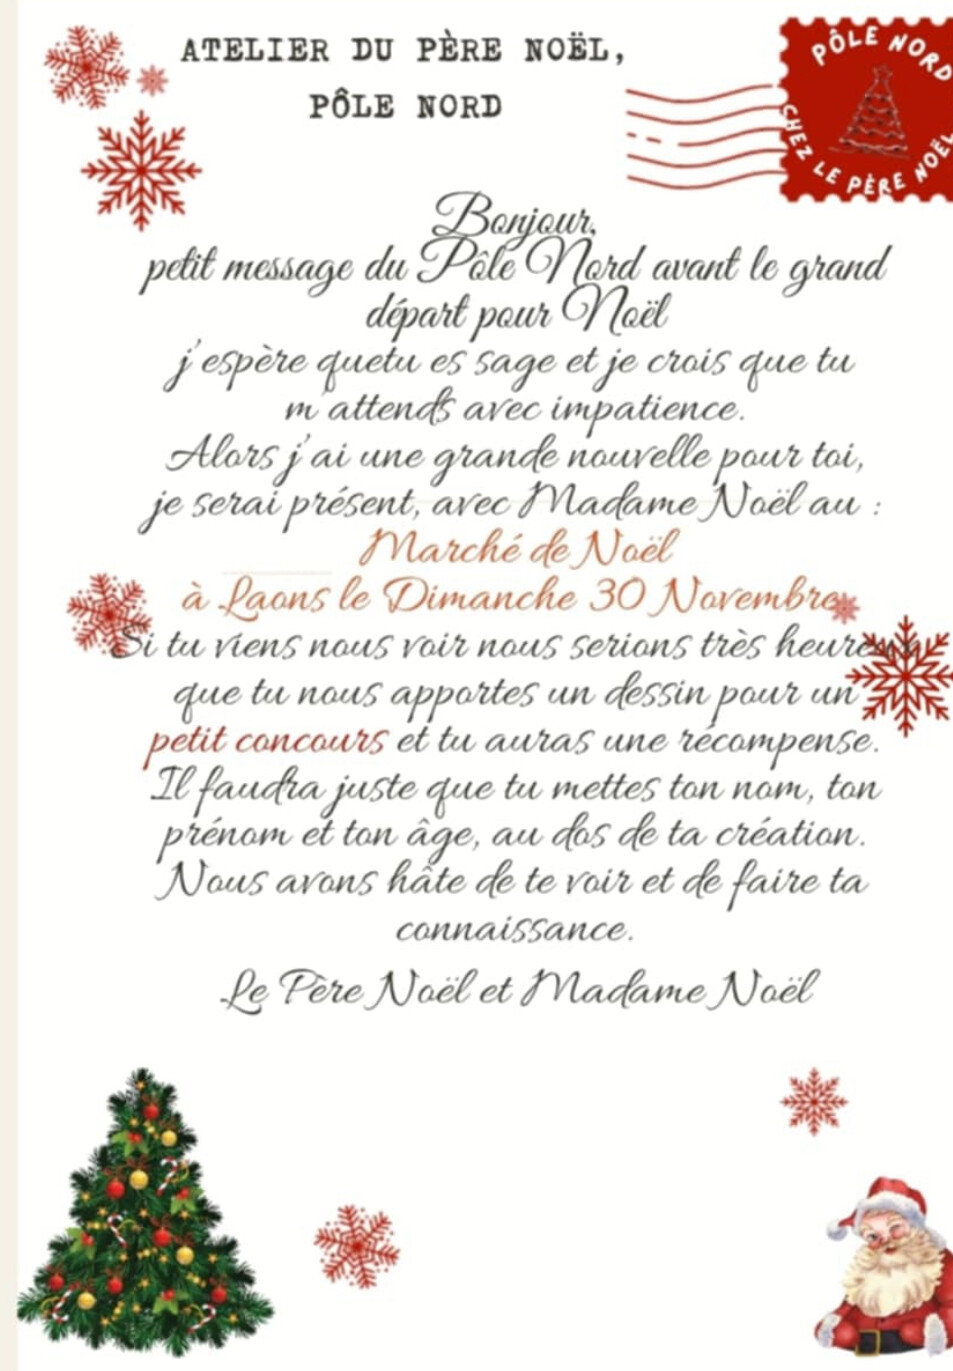 ATELIER DU PÈRE NOËL,
PÔLE NORD
PÔLE NORD
CHEZ LE PÈRE NOËL
Bonjour,
petit message du Pôle Nord avant le grand
départ pour Noël
j'espère quetu es sage et je crois que tu
m'attends avec impatience.
Alors j'ai une grande nouvelle pour toi,
je serai présent, avec Madame Noël au :
Marché de Noël
à Laons le Dimanche 30 Novembre
Si tu viens nous voir nous serions très heureux
que tu nous apportes un dessin pour un
petit concours et tu auras une récompense.
Il faudra juste que tu mettes ton nom, ton
prénom et ton âge, au dos de ta création.
Nous avons hâte de te voir et de faire ta
connaissance.
Le Père Noël et Madame Noël